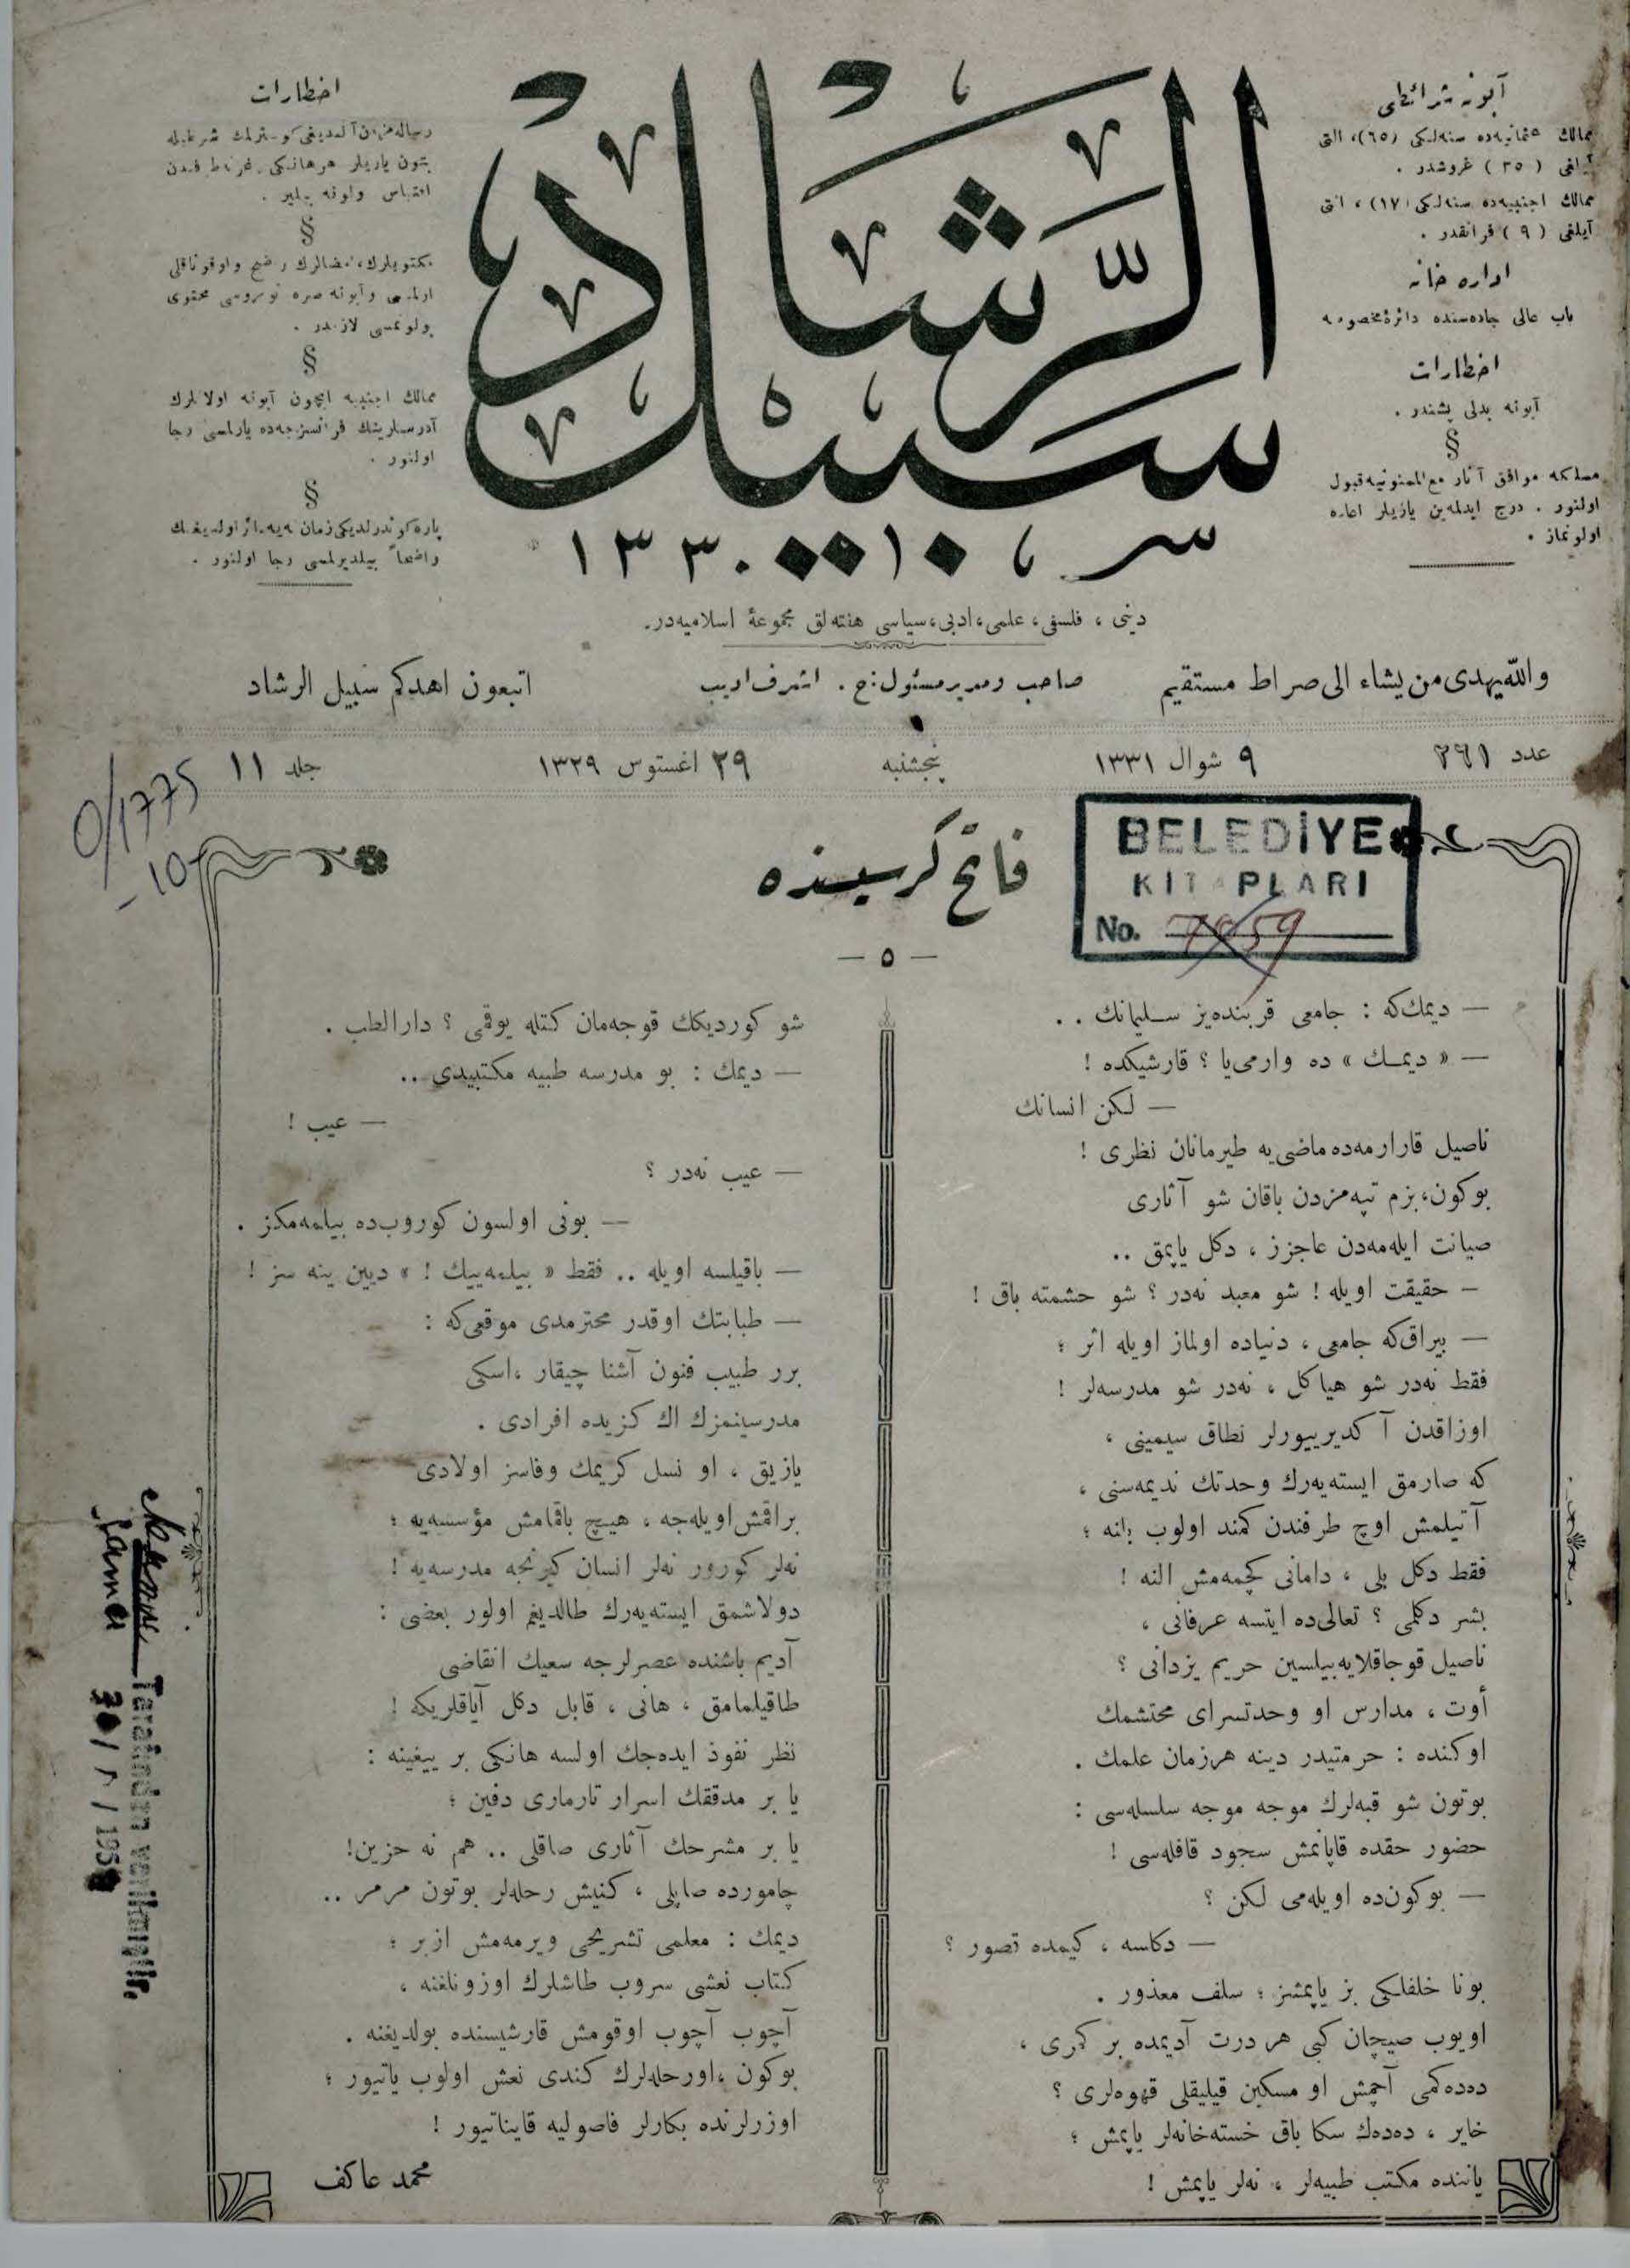 آبونه شرائطی
ممالك عثمانیه‌ده سنه‌لكی (٦٥)، التی
آیلغی ( ٣٥ ) غروشدر .
ممالك اجنبیه‌ده سنه‌لكی (١٧) ، التی
آیلغی ( ٩ ) فرانقدر .
اداره خانه
باب عالی جاده‌سنده دائرهٔ مخصوصه
اخطارات
آبونه بدلی پشندر .
§
مسلكه موافق آثار مع‌الممنونیه قبول
اولنور . درج ایدلمه‌ین یازیلر اعاده
اولونماز .
سبیل الرّشاد
سر ١٠ ١٣٣٠
اخطارات
رساله‌مزدن آلندیغی كوسترلمك شرطیله
بتون یازیلر هر هانكی غزته طرفندن
اقتباس اولونه بیلیر .
§
مكتوبلرك، امضالرك واضح واوقوناقلی
اولمسی وآبونه صره نومروسی محتوی
بولونمسی لازمدر .
§
ممالك اجنبیه ایچون آبونه اولانلرك
آدرسلرینك فرانسزجه‌ده یازلمسی رجا
اولنور .
§
پاره كوندرلدیكی زمان نه‌یه دائر اولدیغنك
واضحاً بیلدیرلمسی رجا اولنور .
دینی ، فلسفی، علمی، ادبی، سیاسی هفته‌لق مجموعهٔ اسلامیه‌در.
والله یهدی من یشاء الی صراط مستقیم
صاحب ومدیر مسئول: ح . اشرف ادیب
اتبعون اهدكم سبیل الرشاد
عدد ٢٦١
٩ شوال ١٣٣١
پنجشنبه
٢٩ اغستوس ١٣٢٩
جلد ١١
0/1775
-107
BELEDİYE
KİTAPLARI
No. 7059
فاتح كرسیسنده
— ٥ —
— دیمك‌كه : جامعی قربنده‌یز سلیمانك . .
— « دیمـك » ده وارمی‌یا ؟ قارشیكده !
— لكن انسانك
ناصیل قارارمه‌ده ماضی‌یه طیرمانان نظری !
بوكون، بزم تپه‌مزدن باقان شو آثاری
صیانت ایله‌مه‌دن عاجزز ، دكل یاپمق ..
— حقیقت اویله ! شو معبد نه‌در ؟ شو حشمته باق !
— بیراق‌كه جامعی ، دنیاده اولماز اویله اثر ؛
فقط نه‌در شو هیاكل ، نه‌در شو مدرسه‌لر !
اوزاقدن آكدیرییورلر نطاق سیمینی ،
كه صارمق ایسته‌یه‌رك وحدتك ندیمه‌سنی ،
آتیلمش اوچ طرفندن كمند اولوب بانه ؛
فقط دكل بلی ، دامانی كچمه‌مش النه !
بشر دكلمی ؟ تعالی‌ده ایتسه عرفانی ،
ناصیل قوجاقلایه‌بیلسین حریم یزدانی ؟
أوت ، مدارس او وحدتسرای محتشمك
اوكنده : حرمتیدر دینه هرزمان علمك .
بوتون شو قبه‌لرك موجه موجه سلسله‌سی :
حضور حقده قاپانمش سجود قافله‌سی !
— بوكون‌ده اویله‌می لكن ؟
— دكلسه ، كیمده قصور ؟
بونا خلفلكی بز یاپمشز ؛ سلف معذور .
اویوب صیچان كبی هر درت آدیمده بر كمری ،
دده‌كمی آچمش او مسكین قیلیقلی قهوه‌لری ؟
خایر ، دده‌ك سكا باق خسته‌خانه‌لر یاپمش ؛
یاننده مكتب طبیه‌لر ، نه‌لر یاپمش !
شو كوردیكك قوجه‌مان كتله یوقمی ؟ دارالطب .
— دیمك : بو مدرسه طبیه مكتبیدی ..
— عیب !
— عیب نه‌در ؟
— بونی اولسون كوروب‌ده بیلمه‌مكز .
— باقیلسه اویله .. فقط « بیلمه‌ییك ! » دیین ینه سز !
— طبابتك اوقدر محترمدی موقعی‌كه :
برر طبیب فنون آشنا چیقار ، اسكی
مدرسینمزك اك كزیده افرادی .
یازیق ، او نسل كریمك وفاسز اولادی
براقمش اویله‌جه ، هیچ باقمامش مؤسسه‌یه ؛
نه‌لر كورور نه‌لر انسان كیرنجه مدرسه‌یه !
دولاشمق ایسته‌یه‌رك طالدیغم اولور بعضی :
آدیم باشنده عصرلرجه سعیك انقاضی
طاقیلمامق ، هانی ، قابل دكل آیاقلریكه !
نظر نفوذ ایده‌جك اولسه هانكی بر ییغینه :
یا بر مدققك اسرار تارماری دفین ؛
یا بر مشرحك آثاری صاقلی .. هم نه حزین!
چامورده صاپلی ، كنیش رحله‌لر بوتون مرمر ..
دیمك : معلمی تشریحی ویرمه‌مش ازبر ؛
كتاب نعشی سروب طاشلرك اوزونلغنه ،
آچوب آچوب اوقومش قارشیسنده بولدیغنه .
بوكون ، اورحله‌لرك كندی نعش اولوب یاتیور ؛
اوزرلرنده بكارلر فاصولیه قایناتیور !
محمد عاكف
Tarafından verilmiştir.